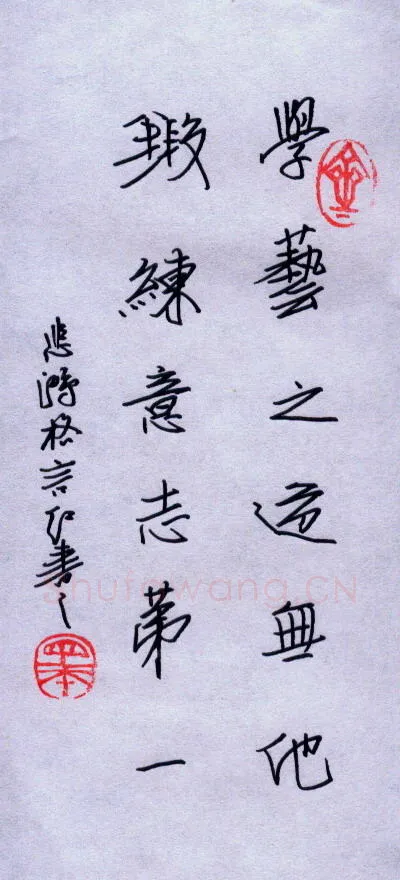 學藝之道無他
鍛練意志第一
悲鴻格言書之
Shufawang.CN